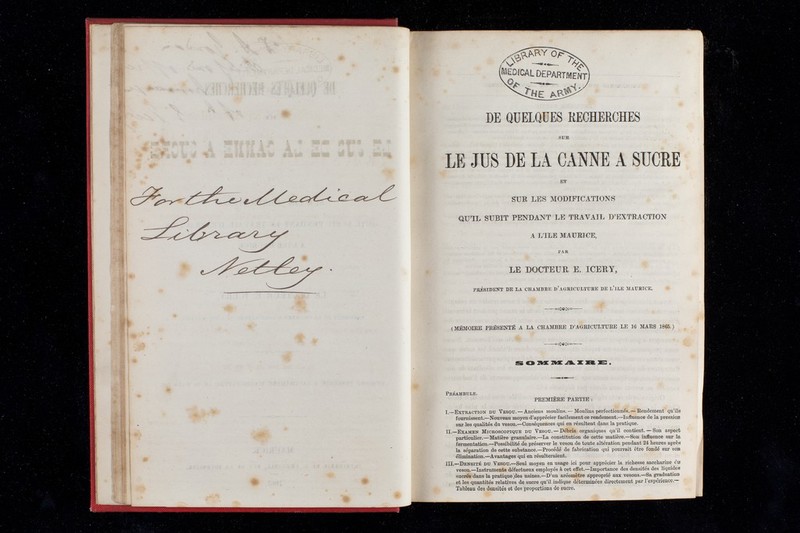 For the Medical
Library
Netley.
LIBRARY OF
MEDICAL DEPARTMENT
OF THE ARMY.
DE QUELQUES RECHERCHES
SUR
LE JUS DE LA CANNE A SUCRE
ET
SUR LES MODIFICATIONS
QU'IL SUBIT PENDANT LE TRAVAIL D'EXTRACTION
A L'ILE MAURICE,
PAR
LE DOCTEUR E. ICERY,
PRÉSIDENT DE LA CHAMBRE D'AGRICULTURE DE L'ILE MAURICE.
(MÉMOIRE PRÉSENTÉ A LA CHAMBRE D'AGRICULTURE LE 16 MARS 1865.)
SOMMAIRE.
PRÉAMBULE.
PREMIÈRE PARTIE :
I.—EXTRACTION DU VESOU.—Anciens moulins.—Moulins perfectionnés.—Rendement qu'ils
fournissent.—Nouveau moyen d'apprécier facilement ce rendement.—Influence de la pression
sur les qualités du vesou.—Conséquences qui en résultent dans la pratique.
II.—EXAMEN MICROSCOPIQUE DU VESOU.—Débris organiques qu'il contient.—Son aspect
particulier.—Matière granulaire.—La constitution de cette matière.—Son influence sur la
fermentation.—Possibilité de préserver le vesou de toute altération pendant 24 heures après
la séparation de cette substance.—Procédé de fabrication qui pourrait être fondé sur son
élimination.—Avantages qui en résulteraient.
III.—DENSITÉ DU VESOU.—Seul moyen en usage ici pour apprécier la richesse saccharine du
vesou.—Instruments défectueux employés à cet effet.—Importance des densités des liquides
sucrés dans la pratique des usines.—D'un aréomètre approprié aux vesous.—Sa graduation
et les quantités relatives de sucre qu'il indique déterminées directement par l'expérience.—
Tableau des densités et des proportions de sucre.